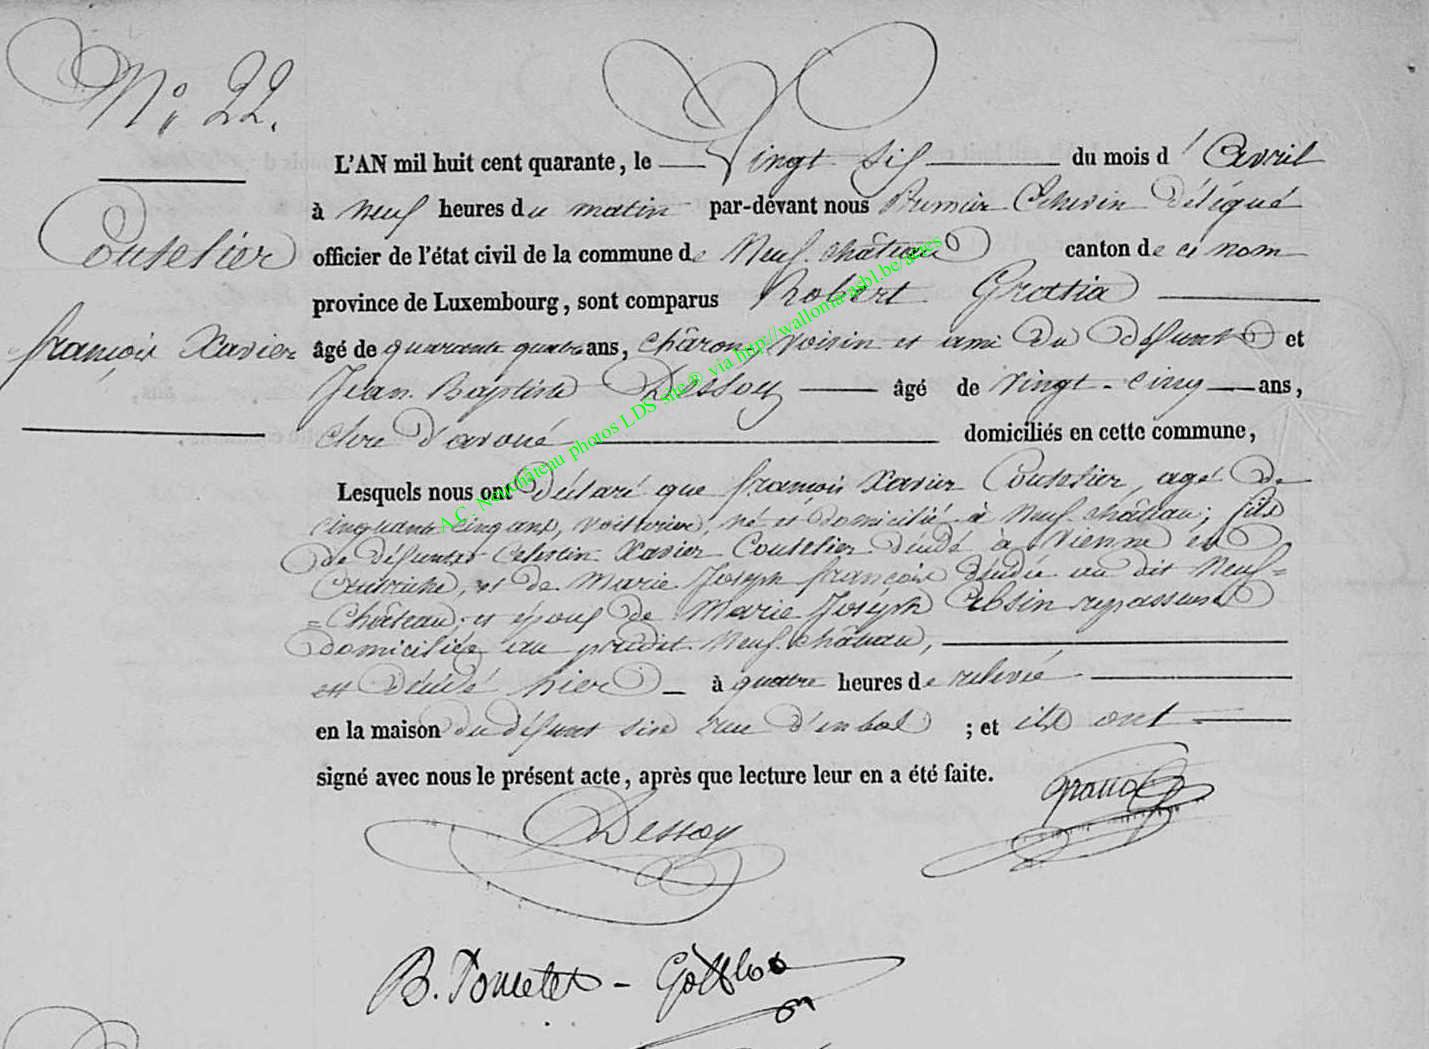 N° 22.
L'AN mil huit cent quarante, le Vingt Six du mois d'Avril
à Neuf heures du matin par-devant nous Premier Echevin Délégué
Coutelier
officier de l'état civil de la commune de Neuf-château canton de ce nom
province de Luxembourg, sont comparus Robert Gratia
françois Xavier
âgé de quarante quatre ans, chàron, voisin et ami du Défunt et
Jean Baptiste Dessoy âgé de Vingt-cinq ans,
clerc d'avoué domiciliés en cette commune,
Lesquels nous ont Déclaré que françois Xavier Coutelier, agé de
cinquante cinq ans, voiturier, né et domicilié à Neuf-château; fils
de défunts Celestin Xavier Coutelier décédé à Vienne en
Autriche, et de Marie Joseph françois décédée au dit Neuf=
=Château; et époux de Marie Joseph repasseuse
domiciliée au prédit Neuf-château,
est Décédé hier à quatre heures de relevée
en la maison du défunt sise rue d'en bas ; et ils ont
signé avec nous le présent acte, après que lecture leur en a été faite.
Gratia
Dessoy
B.
A.C. Neufchâteau photos LDS site® via http://wallonia-asbl.be/actes